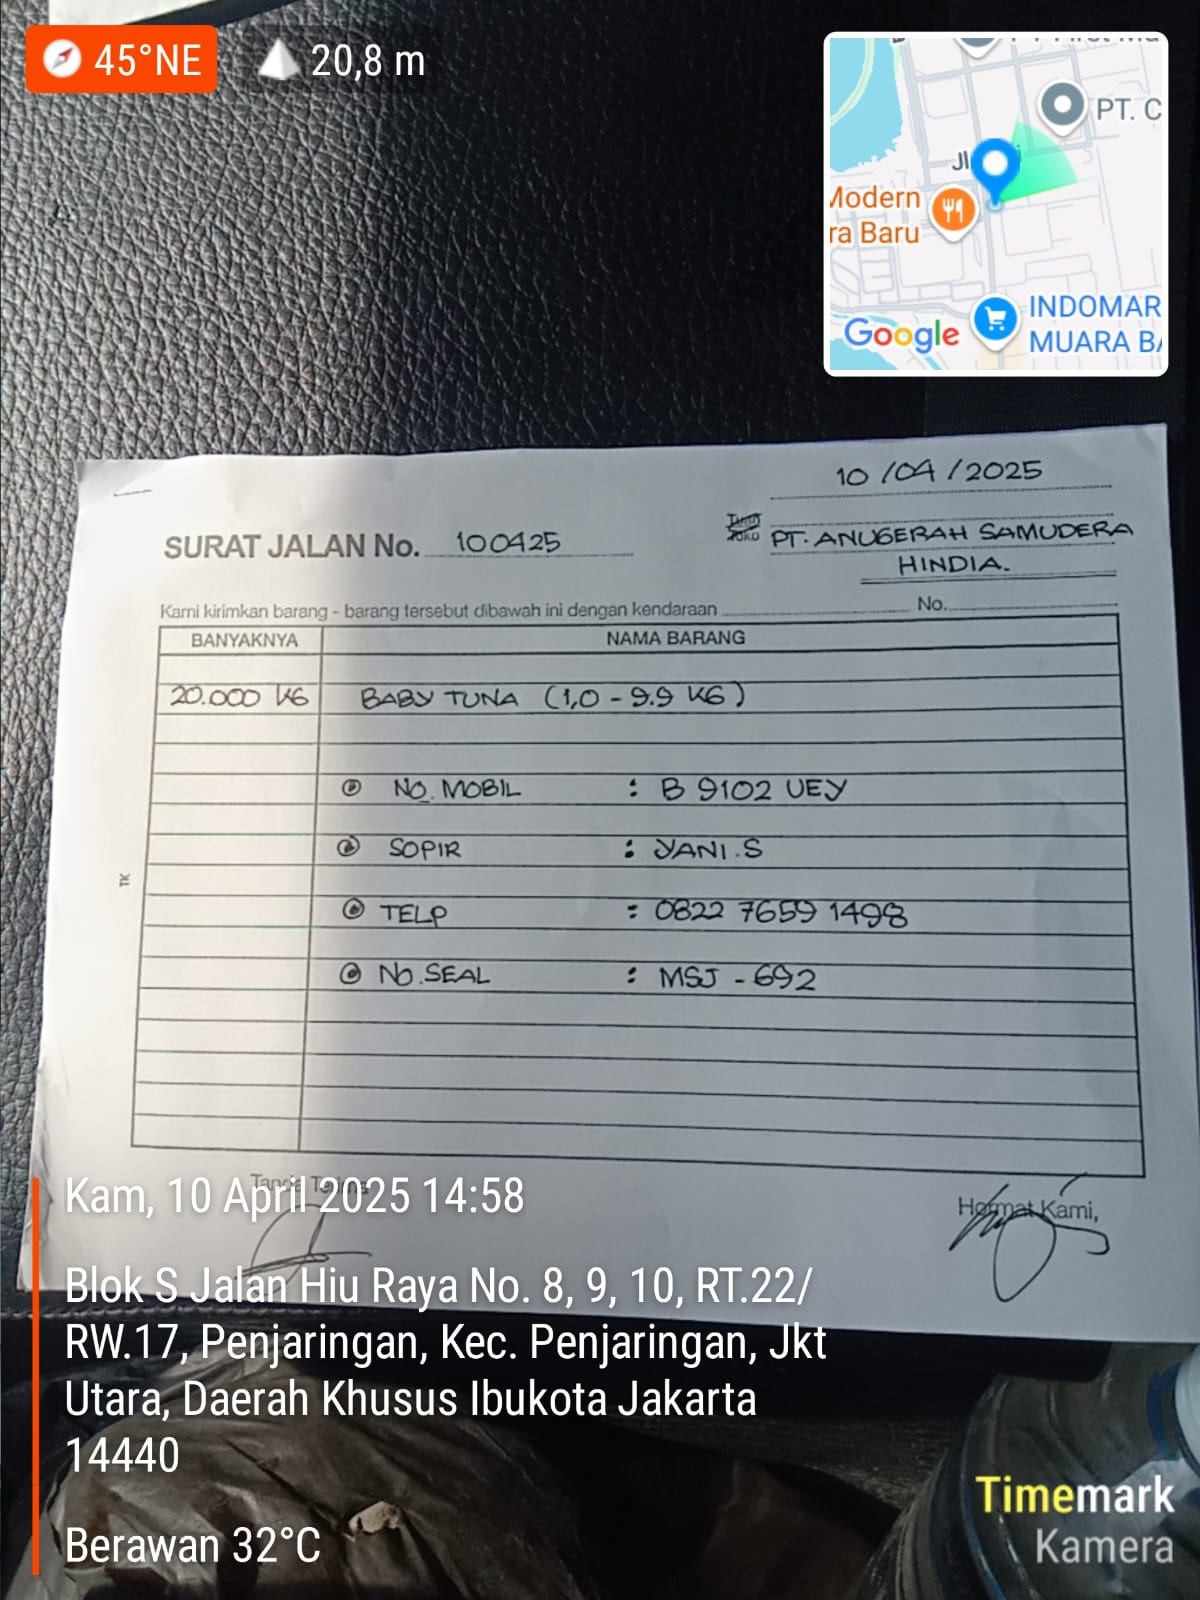 45°NE
20,8 m
PT. C
Jl
Modern
ra Baru
INDOMAR
MUARA BA
Google
10/04/2025
SURAT JALAN No. 100425
Tuan
Toko
PT. ANUGERAH SAMUDERA
HINDIA.
Kami kirimkan barang - barang tersebut dibawah ini dengan kendaraan No.
BANYAKNYA NAMA BARANG
20.000 KG BABY TUNA (1,0 - 9.9 KG)
NO. MOBIL : B 9102 UEY
SOPIR : YANI.S
TELP : 0822 7659 1498
NO.SEAL : MSJ - 692
TK
Tanda Terima
Hormat Kami,
Kam, 10 April 2025 14:58
Blok S Jalan Hiu Raya No. 8, 9, 10, RT.22/
RW.17, Penjaringan, Kec. Penjaringan, Jkt
Utara, Daerah Khusus Ibukota Jakarta
14440
Berawan 32°C
Timemark
Kamera